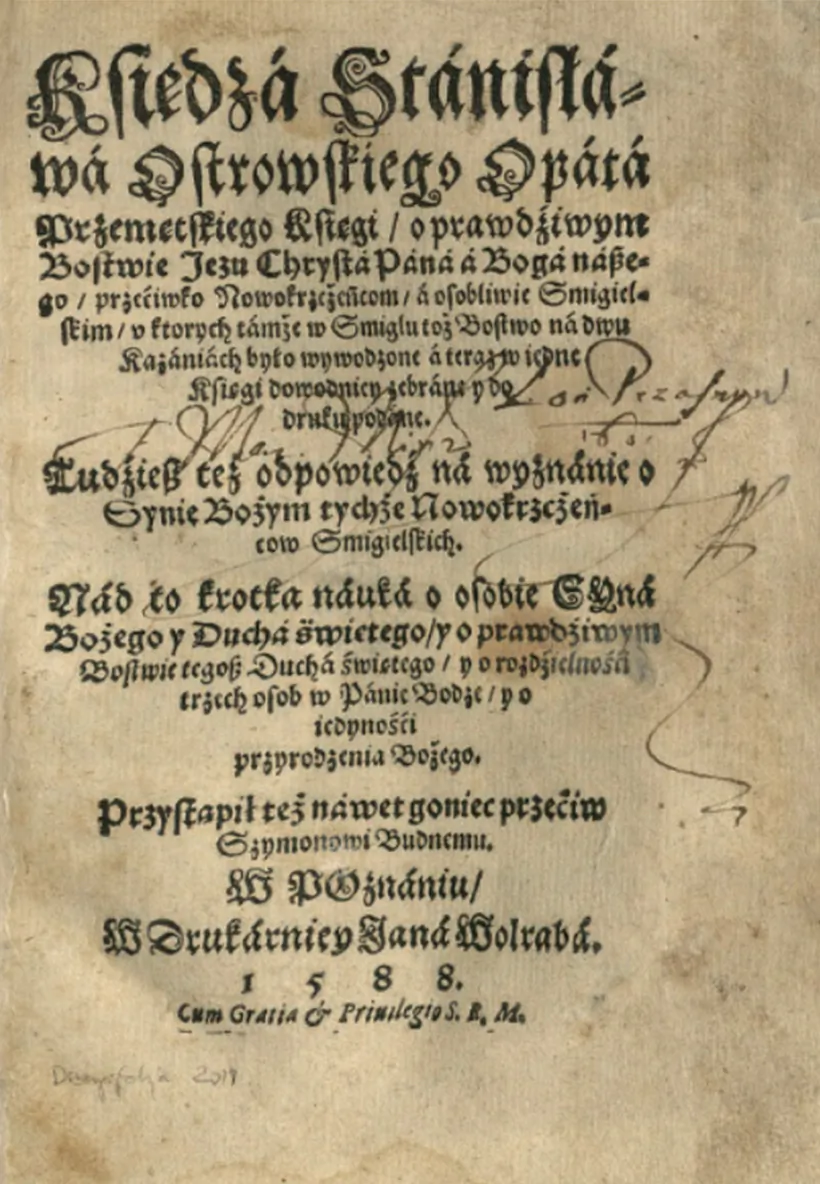 Ksiedzá Stánisłá-
wá Ostrowskiego Opátá
Przemetskiego Ksiegi / o prawdźiwym
Bostwie Jezu Chrystá Páná á Bogá násze-
go / przećiwko Nowokrzczeńcom / á osobliwie Smigiel-
skim / v ktorych támże w Smiglu toż Bostwo ná dwu
Kazániách było wywodzone á teraz w iedne
Ksiegi dowodniey zebráne y do
druku podáne.
Tudźiesz też odpowiedź ná wyznánie o
Synie Bożym tychże Nowokrzczeń-
cow Smigielskich.
Nád to krotka náuká o osobie SYná
Bożego y Duchá świetego / y o prawdźiwym
Bostwie tegosz Duchá świetego / y o rozdźielnośći
trzech osob w Pánie Bodze / y o
iedynośći
przyrodzenia Bożego.
Przystapił też náwet goniec przećiw
Szymonowi Budnemu.
W POznániu /
W Drukárniey Janá Wolrabá.
1 5 8 8.
Cum Gratia & Priuilegio S. R. M.
2011